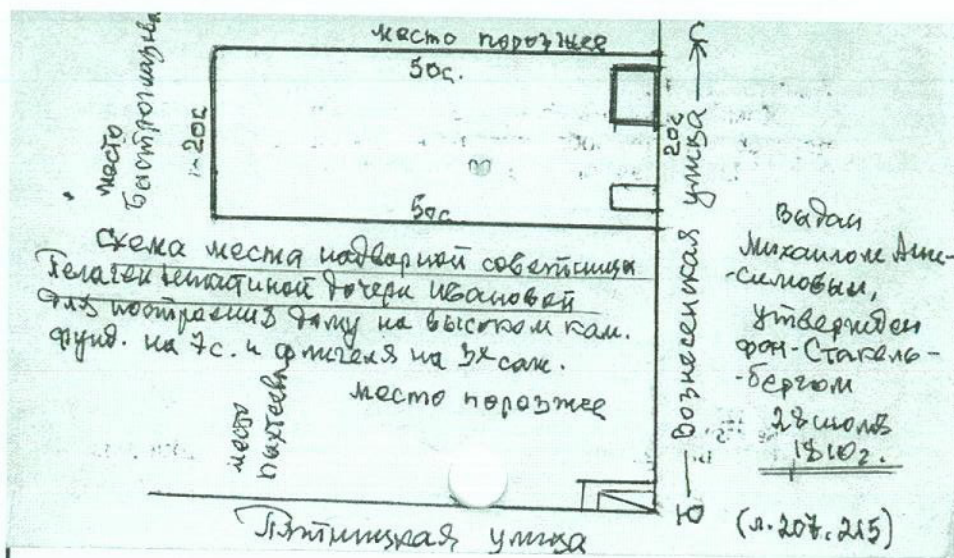 место порозжее
50с.
20с
20с
место
Быстроглазова
50с.
← Ю — Вознесенская улица → С
Схема места надворной советницы
Пелагеи Игнатиной дочери Ивановой
для построения дому на высоком кам.
фунд. на 7с. и флигеля на 3х саж.
место порозжее
место
Пыхтеева
Пятницкая улица
выдан
Михаилом Ани-
-симовым,
утвержден
фон-Стакель-
-бергом
28 июля
1810г.
(л.207.215)